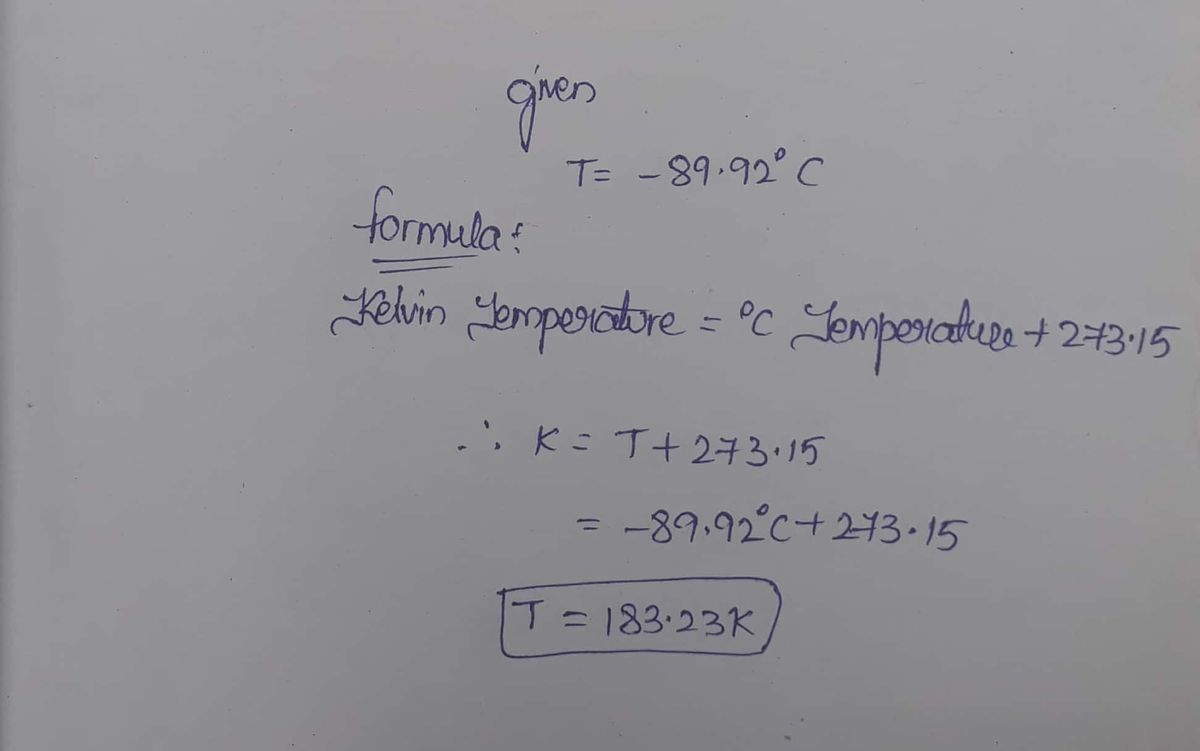 given
T= -89.92° C
formula:
Kelvin Temperature = °C Temperature + 273.15
∴ K = T + 273.15
= -89.92°C + 273.15
T = 183.23K